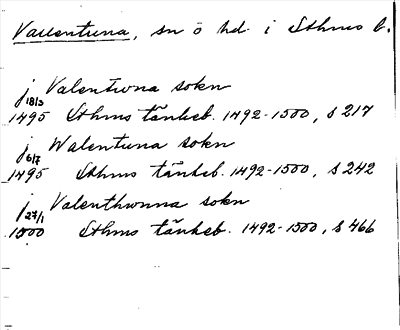 Vallentuna, sn ö hd. i Sthms l.
j Valentwna sokn
18/3
1495 Sthms tänkeb. 1492-1500, s 217
j Walentuna sokn
6/7
1495 Sthms tänkeb. 1492-1500, s 242
j Valenthwnna sokn
27/1
1500 Sthms tänkeb. 1492-1500, s 466